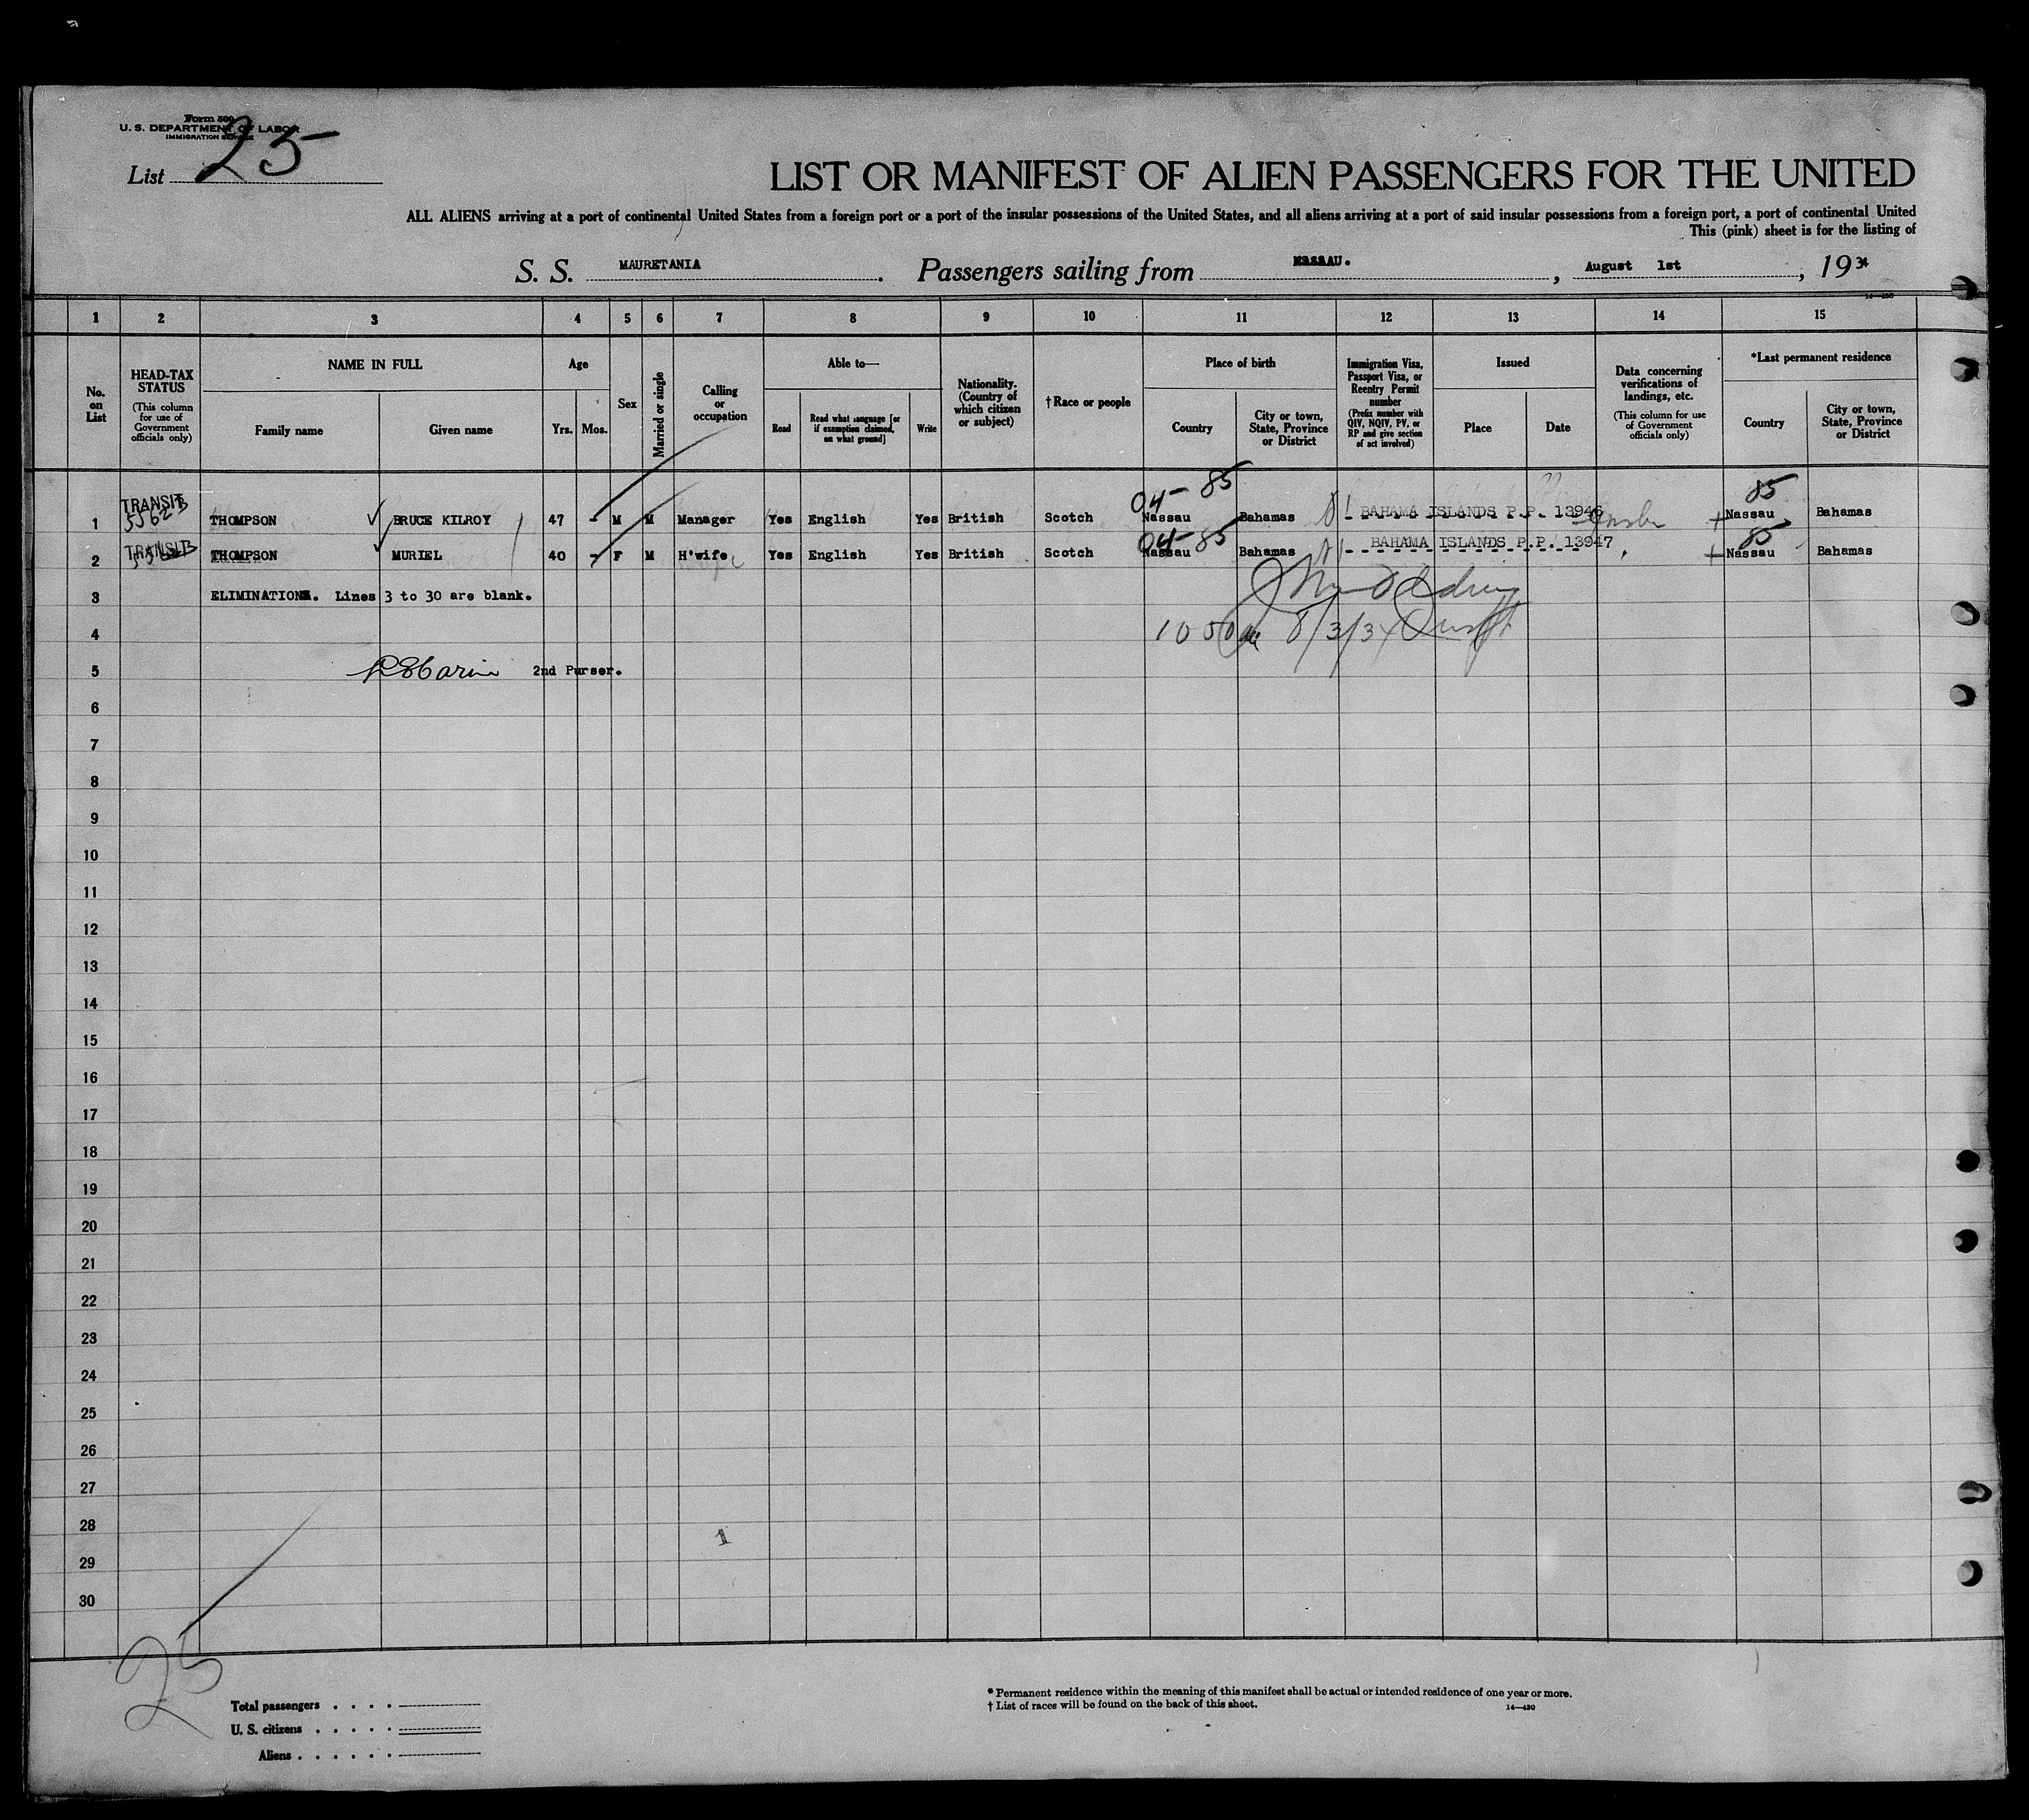 Form 500
U. S. DEPARTMENT OF LABOR
IMMIGRATION SERVICE
List 25
LIST OR MANIFEST OF ALIEN PASSENGERS FOR THE UNITED
ALL ALIENS arriving at a port of continental United States from a foreign port or a port of the insular possessions of the United States, and all aliens arriving at a port of said insular possessions from a foreign port, a port of continental United
This (pink) sheet is for the listing of
S. S. MAURETANIA. Passengers sailing from NASSAU. , August 1st , 1934
1 2 3 4 5 6 7 8 9 10 11 12 13 14 15
No. on List
HEAD-TAX STATUS (This column for use of Government officials only)
NAME IN FULL
Family name Given name
Age
Yrs. Mos.
Sex
Married or single
Calling or occupation
Able to—
Read Read what language [or if exemption claimed, on what ground] Write
Nationality. (Country of which citizen or subject)
†Race or people
Place of birth
Country City or town, State, Province or District
Immigration Visa, Passport Visa, or Reentry Permit number (Prefix number with QIV, NQIV, PV, or RP and give section of act involved)
Issued
Place Date
Data concerning verifications of landings, etc. (This column for use of Government officials only)
*Last permanent residence
Country City or town, State, Province or District
04- 85 85
1 TRANSIT 5562B THOMPSON BRUCE KILROY 47 - M M Manager Yes English Yes British Scotch Nassau Bahamas BAHAMA ISLANDS P.P. 13946 Nassau Bahamas
04- 85 85
2 TRANSIT THOMPSON MURIEL 40 - F M H'wife Yes English Yes British Scotch Nassau Bahamas BAHAMA ISLANDS P.P. 13947 Nassau Bahamas
3 ELIMINATIONS. Lines 3 to 30 are blank.
4 8/3/34
5 2nd Purser.
6
7
8
9
10
11
12
13
14
15
16
17
18
19
20
21
22
23
24
25
26
27
28
1
29
30
25
Total passengers . . . .
U. S. citizens . . . . .
Aliens . . . . . .
* Permanent residence within the meaning of this manifest shall be actual or intended residence of one year or more.
† List of races will be found on the back of this sheet. 14—430